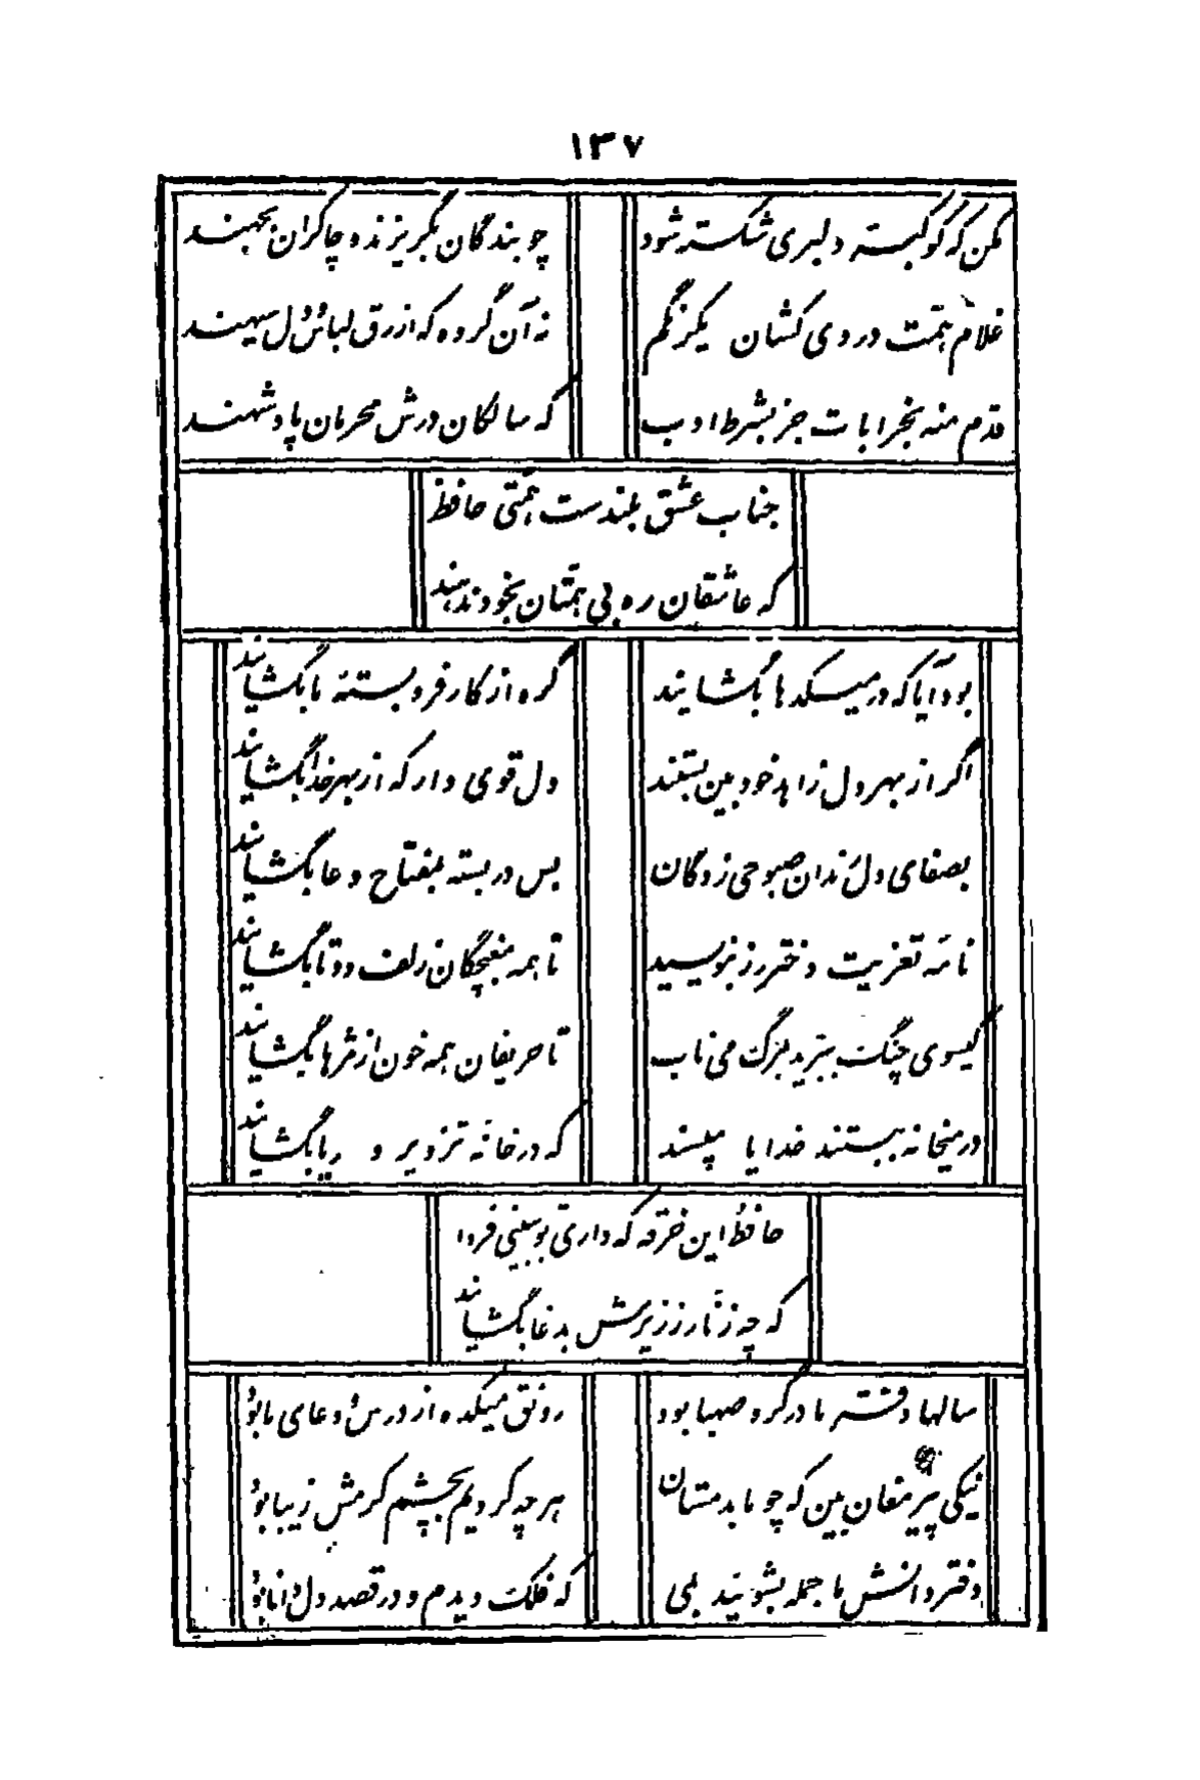 ۱۳۷
مکن که کوکبهٔ دلبری شکسته شود
چو بندگان بگریزند و چاکران بجهند
غلام همت دردی کشان یکرنگم
نه آن گروه که ازرق لباس و دل سیهند
قدم منه بخرابات جز بشرط ادب
که سالکان درش محرمان پادشهند
جناب عشق بلندست همتی حافظ
که عاشقان ره بی همتان بخود ندهند
بود آیا که در میکدها بگشایند
گره از کار فرو بستهٔ ما بگشایند
اگر از بهر دل زاهد خودبین بستند
دل قوی دار که از بهر خدا بگشایند
بصفای دل رندان صبوحی زدگان
بس در بسته بمفتاح دعا بگشایند
نامهٔ تعزیت دختر رز بنویسید
تا همه مغبچگان زلف دوتا بگشایند
گیسوی چنگ ببرید بمرگ می ناب
تا حریفان همه خون از مژها بگشایند
در میخانه ببستند خدایا مپسند
که در خانهٔ تزویر و ریا بگشایند
حافظ این خرقه که داری تو ببینی فردا
که چه زنار ز زیرش بدغا بگشایند
سالها دفتر ما در گرو صهبا بود
رونق میکده از درس و دعای ما بود
نیکی پیر مغان بین که چو ما بدمستان
هر چه کردیم بچشم کرمش زیبا بود
دفتر دانش ما جمله بشوئید بمی
که فلک دیدم و در قصد دل دانا بود